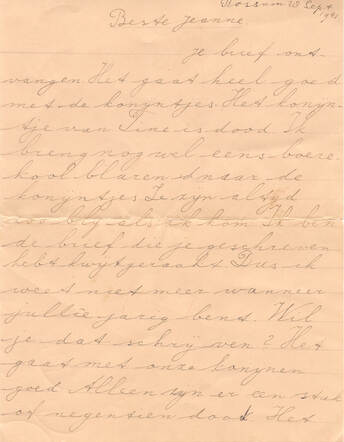 Rossum 19 Sept
Beste Jeanne
je brief ont-
vangen Het gaat heel goed
met de konyntjes. Het konyn-
tje van Tine is dood Ik
breng nog wel eens boere-
kool blaren naar de
konyntjes Ze zyn altyd
zoo bly als ik kom Ik ben
de brief die je geschreven
hebt kwytgeraakt Dus ik
weet niet meer wanneer
jullie jarig bent. Wil
je dat schrijven? Het
gaat met onze konynen
goed Alleen zyn er een stuk
of negentien dood Het